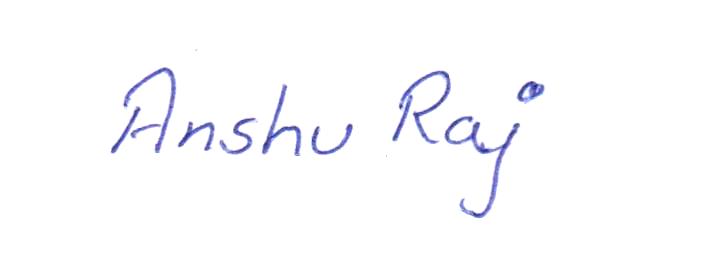 Anshu Raj